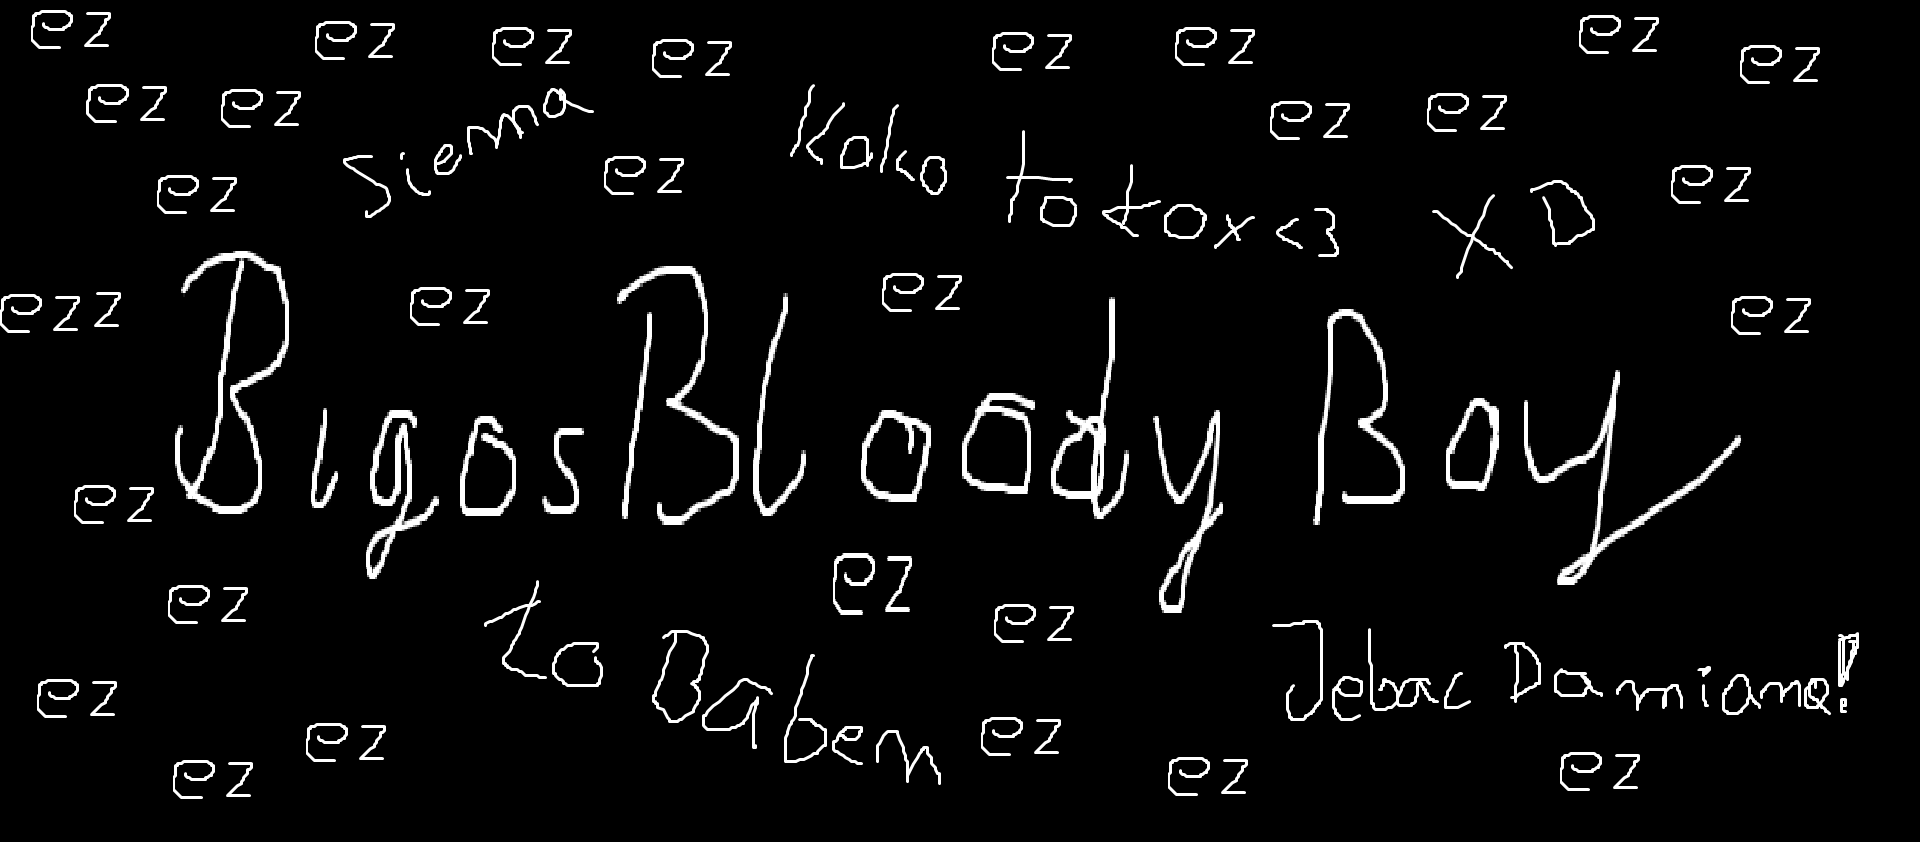 ez ez ez ez ez ez ez ez
ez ez ez ez
Siema ez Kako to totox<3 XD
ez ez
ezz ez ez ez
BigosBloody Boy
ez
ez ez ez
to Baben Jebac Damiana!
ez ez ez
ez ez ez